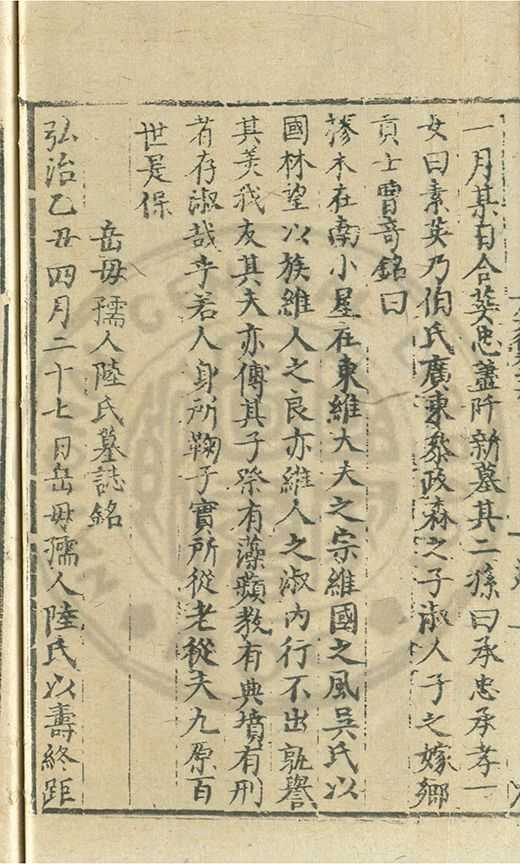 一月某日合葬忠藎阡新墓其二孫曰承忠承孝一
女曰素英乃伯氏廣東叅政森之子淑人子之嫁鄉
貢士曹奇銘曰
樛木在南小星在東維大夫之宗維國之風吳氏以
國林望以族維人之良亦維人之淑内行不出孰譽
其美我友其夫亦傅其子祭有藻蘋教有典墳有刑
者存淑哉乎若人身所鞠子實所從老從夫九原百
世是保
岳毋孺人陸氏墓誌銘
弘治乙丑四月二十七日岳毋孺人陸氏以壽終距